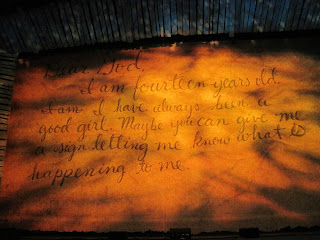 Dear God,
I am fourteen years old.
I am I have always been a
good girl. Maybe you can give me
a sign letting me know what is
happening to me.